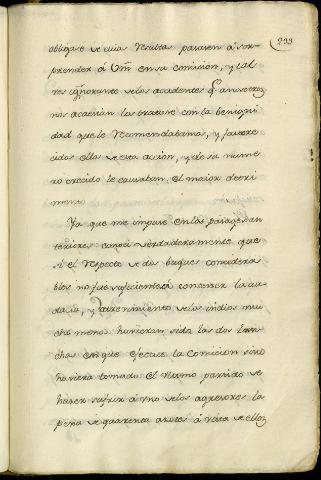 233
obligase de cuias resultas pararen á sor-
prender á Vm en su comicion, y tal
ves ignorante de los acsidentes q.e a nosotros
nos acaecian los tratase con la benigni
dad que le recomendabamos, y favore
cidos ellos de esta acsion, y de su nume
ro crecido le causaran el maior detri
mento.
Ya que me impuse en los paiages an
teriores conocí verdaderamente que
si el respecto de dos buques considera
bles no fue suficiente á contener la au
dacia, y atrevimiento de los indios mu
cho menos huvieran sido las dos lan
chas en que efectue la Comicion sino
huviera tomado el ultimo partido de
haser sufrir á uno de los agresores la
pena de quarenta asotes á vista de ellos